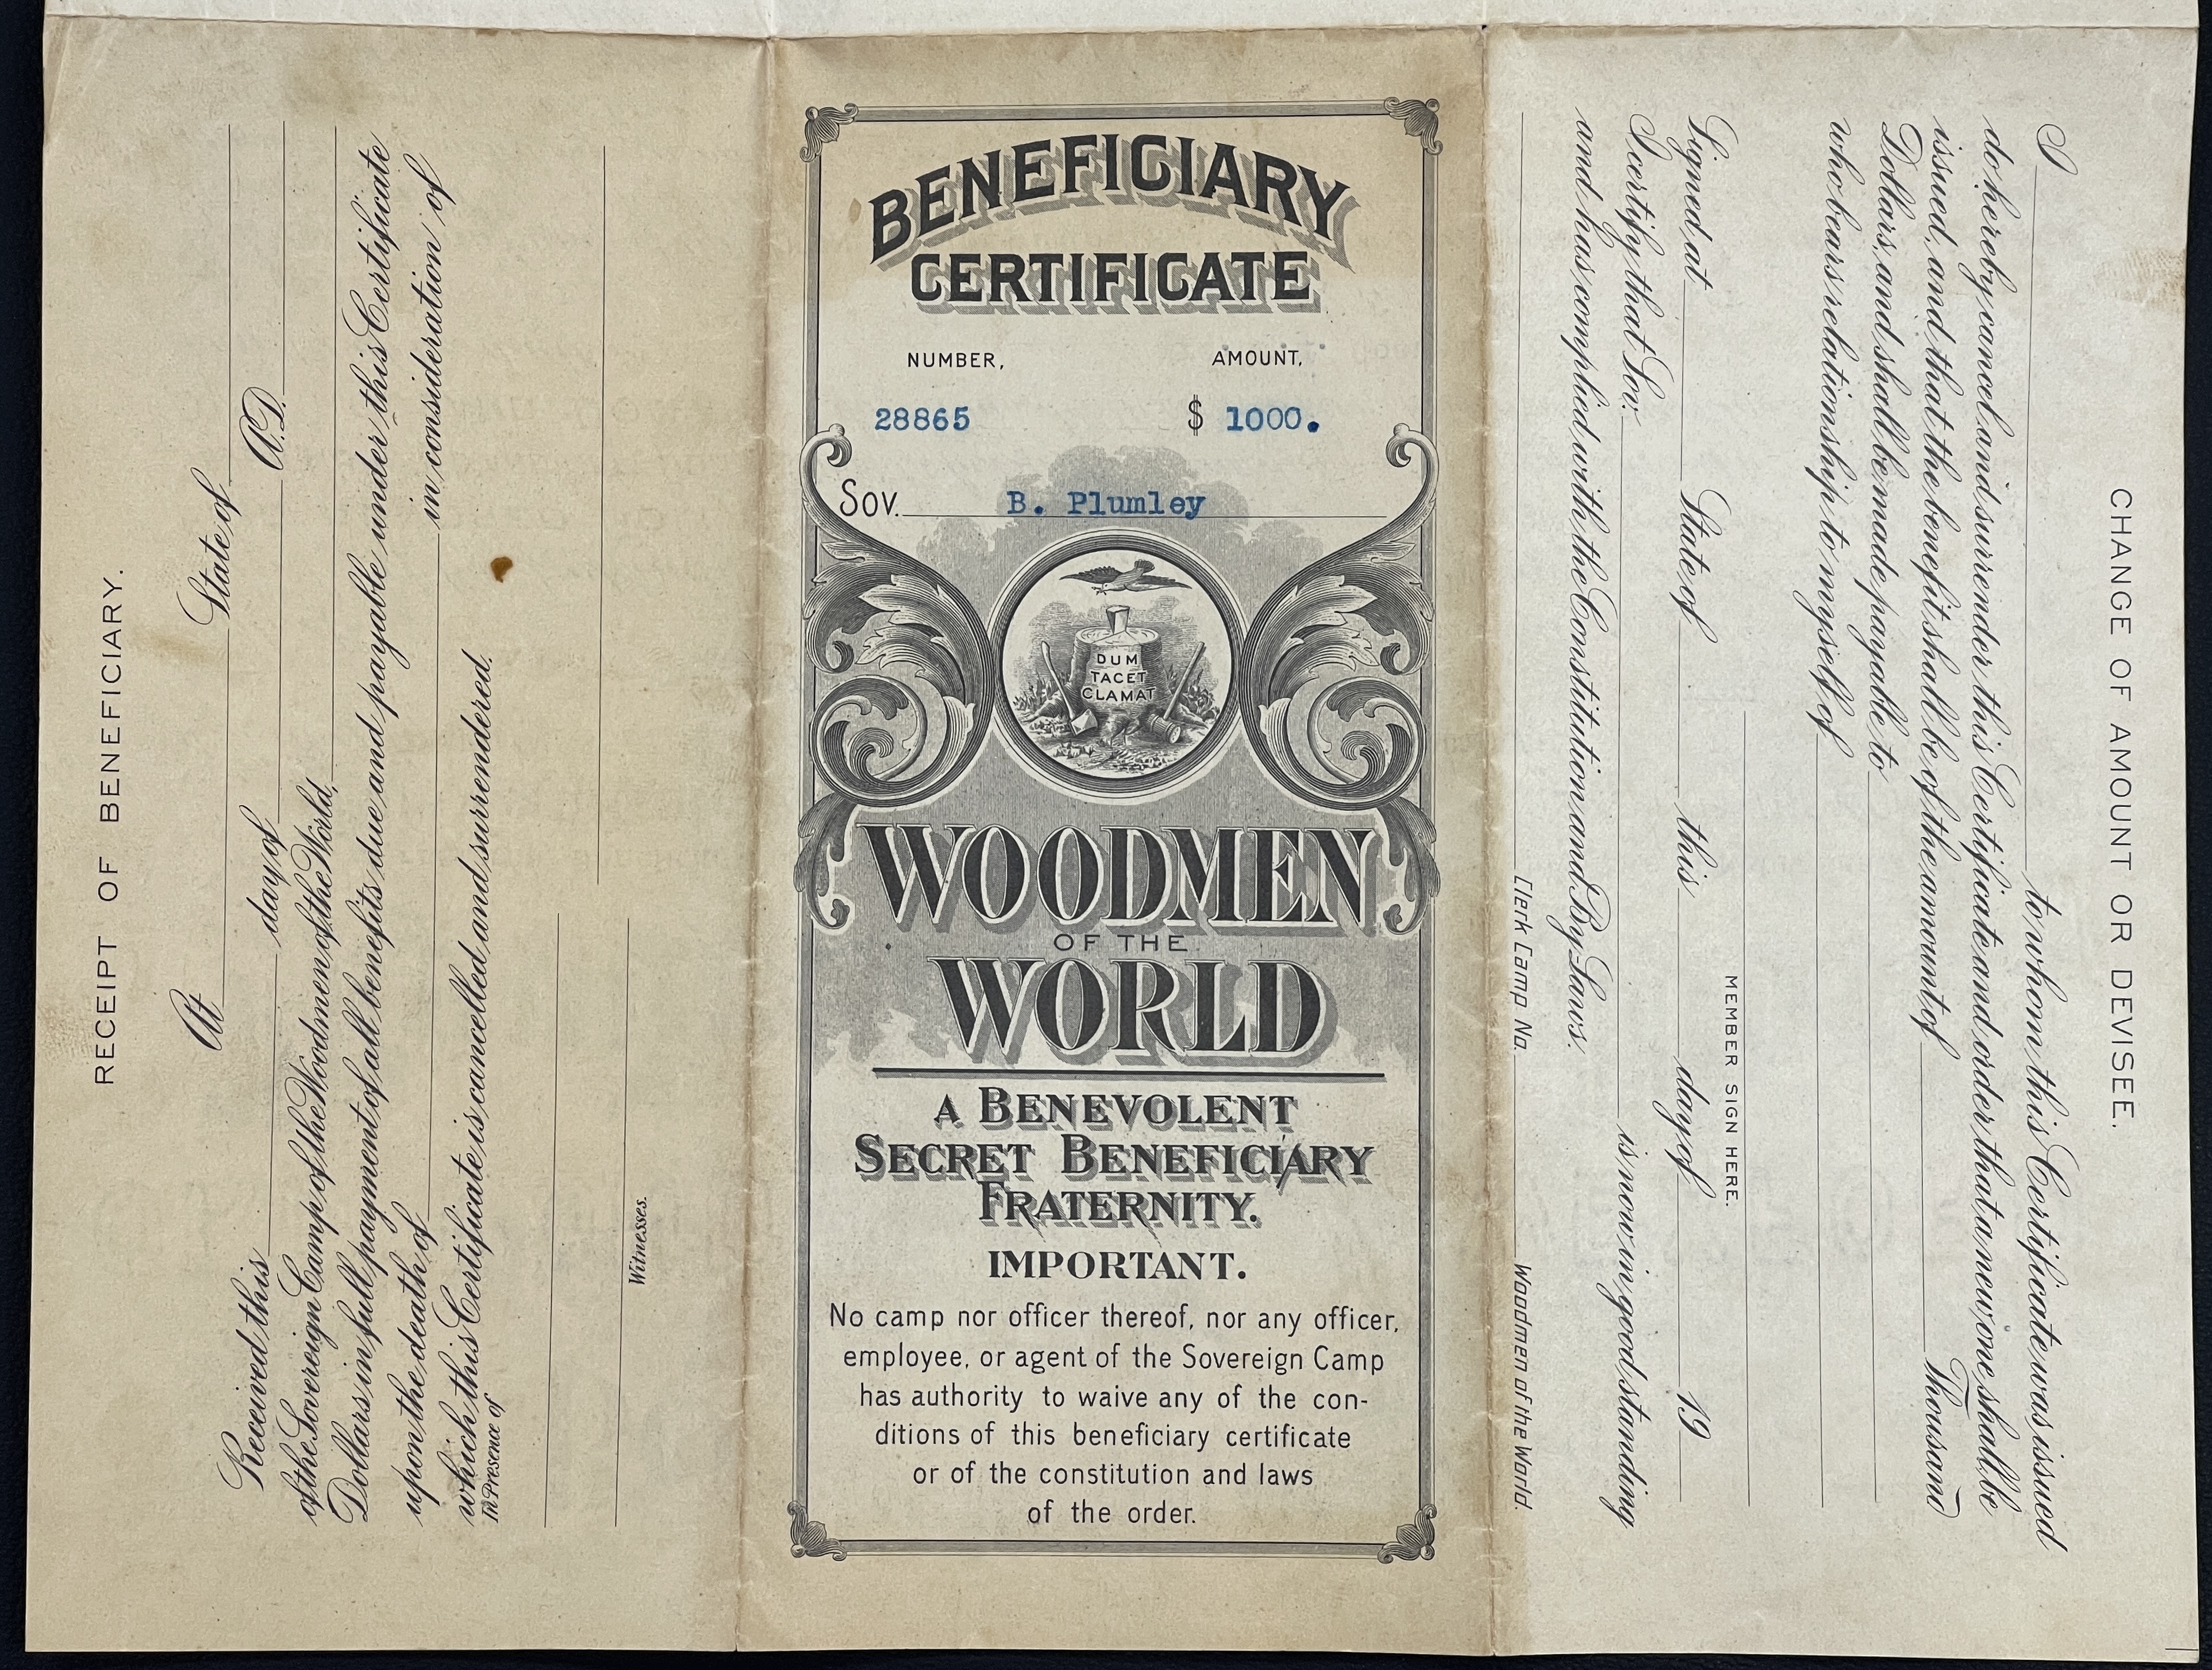 RECEIPT OF BENEFICIARY.
At State of
Received this day of A.D.
of the Sovereign Camp of the Woodmen of the World,
Dollars in full payment of all benefits due and payable under this Certificate
upon the death of in consideration of
which this Certificate is cancelled and surrendered.
In Presence of
Witnesses.
BENEFICIARY
CERTIFICATE
NUMBER, AMOUNT,
28865 $ 1000.
Sov. B. Plumley
DUM
TACET
CLAMAT
WOODMEN
OF THE
WORLD
A BENEVOLENT
SECRET BENEFICIARY
FRATERNITY.
IMPORTANT.
No camp nor officer thereof, nor any officer,
employee, or agent of the Sovereign Camp
has authority to waive any of the con-
ditions of this beneficiary certificate
or of the constitution and laws
of the order.
CHANGE OF AMOUNT OR DEVISEE.
I to whom this Certificate was issued
do hereby cancel and surrender this Certificate and order that a new one shall be
issued, and that the benefit shall be of the amount of Thousand
Dollars, and shall be made payable to
who bears relationship to myself of
MEMBER SIGN HERE.
Signed at State of this day of 19
I certify that Sov. is now in good standing
and has complied with the Constitution and By-Laws.
Clerk Camp No. Woodmen of the World.